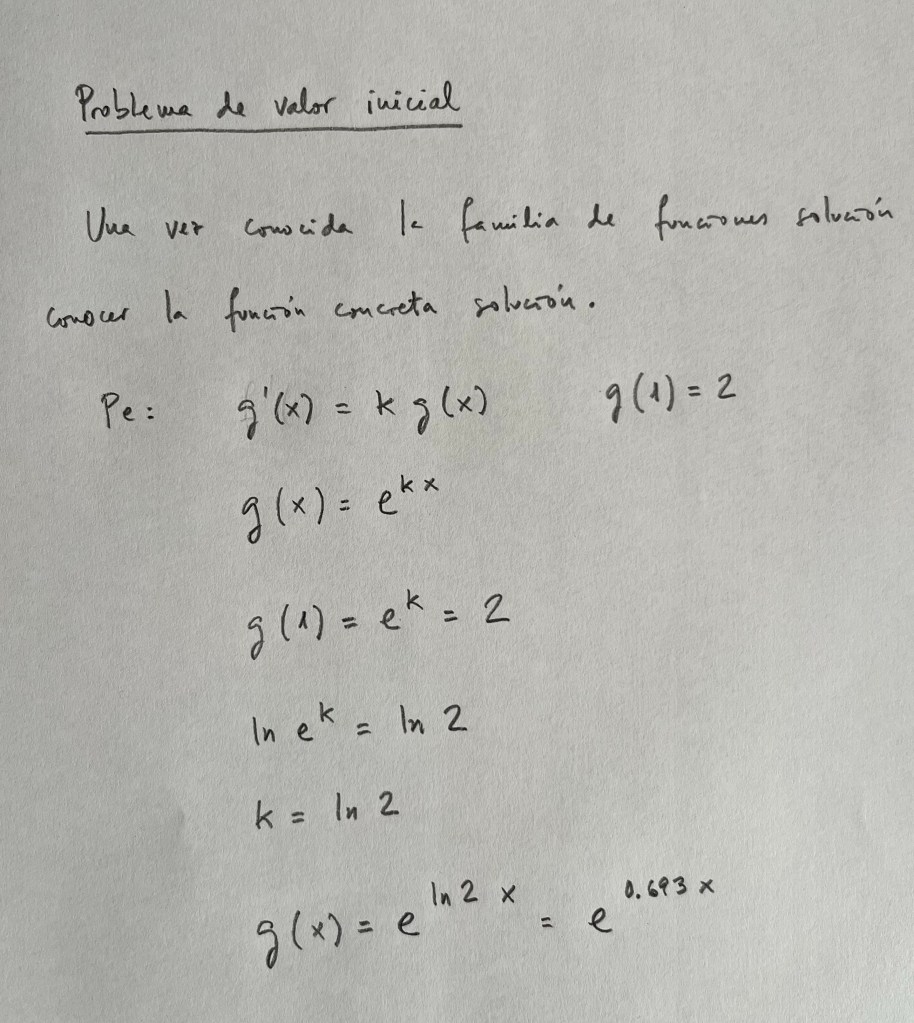 Problema de valor inicial
Una vez conocida la familia de funciones solución
conocer la función concreta solución.
Pe: g'(x) = k g(x) g(1) = 2
g(x) = e^{kx}
g(1) = e^k = 2
ln e^k = ln 2
k = ln 2
g(x) = e^{ln 2 x} = e^{0.693 x}